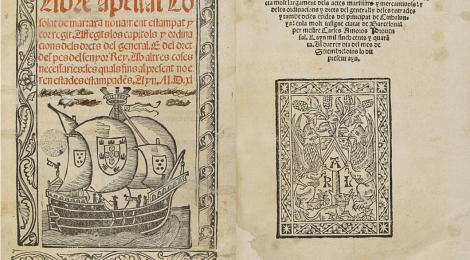 Libre apellat Co
solat de mar: ara nouament estampat y
corregit. Affegits los capitols y ordina
cions dels drets del general. E del dret
del pes del senyor Rey. Ab altres coses
necessaries: les quals fins al present no e
ren estades estampades. Any .M.D.xl
molt largament dels actes maritims y mercantiuols: y
ordinacions y drets del general
y tambe deles crides del principat de
enla molt insigne ciutat de Barcelona
per mestre Carles Amoros Prouen
sal. Lany mil sinchcents y quara
ta. Al darrer dia del mes de
present any.
A
R L